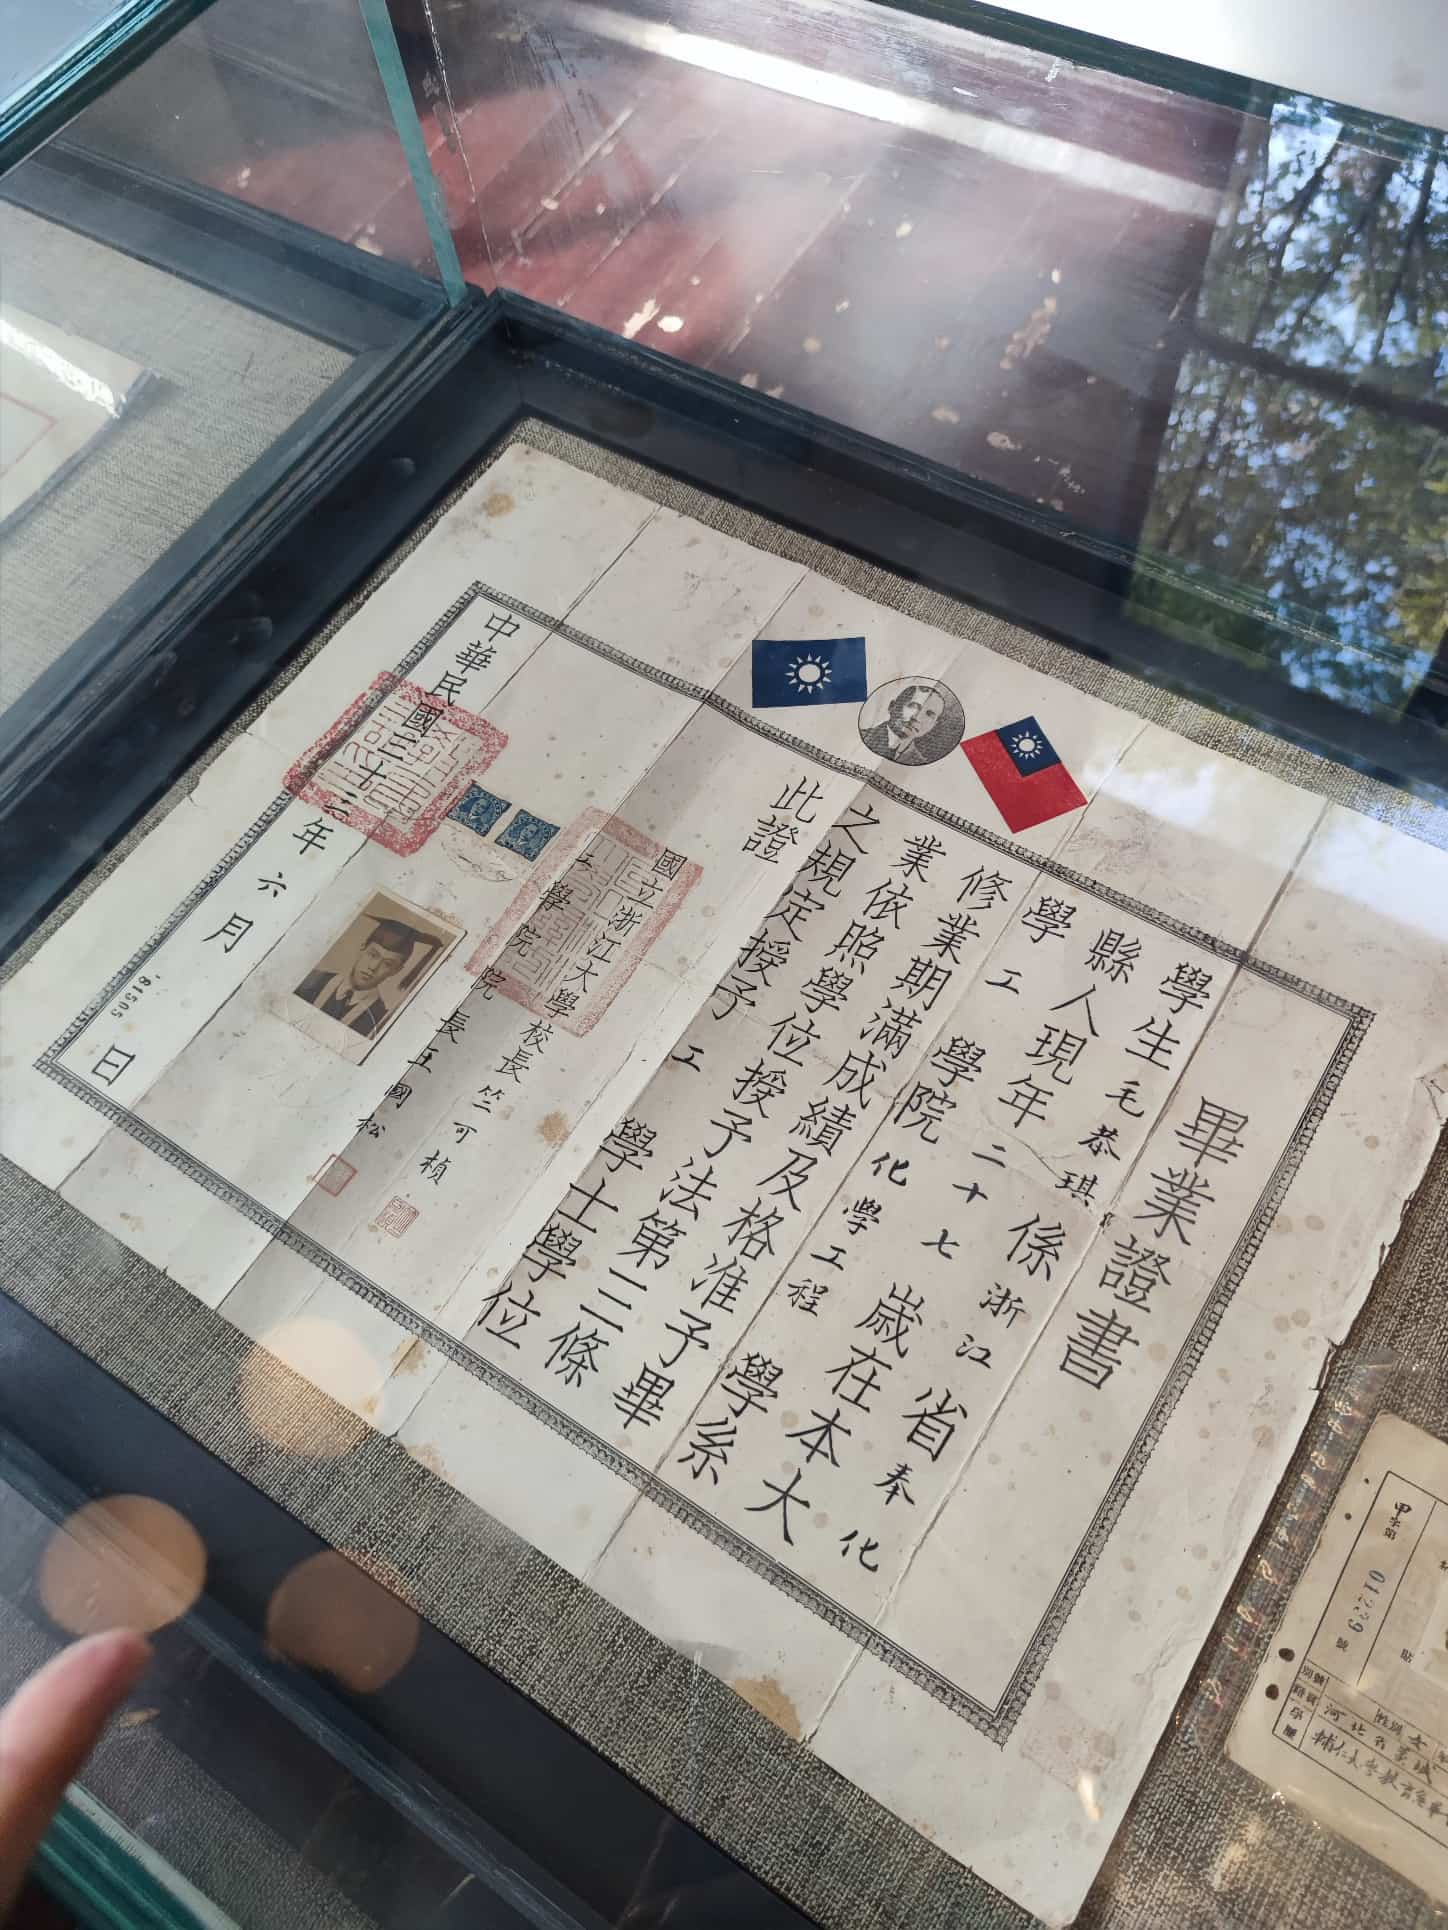 畢業證書
學生毛恭琪係浙江省奉化
縣人現年二十七歲在本大
學工學院化學工程學系
修業期滿成績及格准予畢
業依照學位授予法第三條
之規定授予工學士學位
此證
國立浙江大學校長竺可楨
學院院長王國松
中華民國三十三年六月日
81505
甲字第01239號
貼
別號
性別女
籍貫河北省
學歷輔仁大學教育